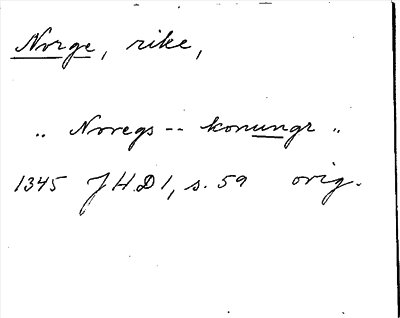 Norge, rike,
„ Noregs -- konungr „
1345 JHD 1, s. 59 orig.